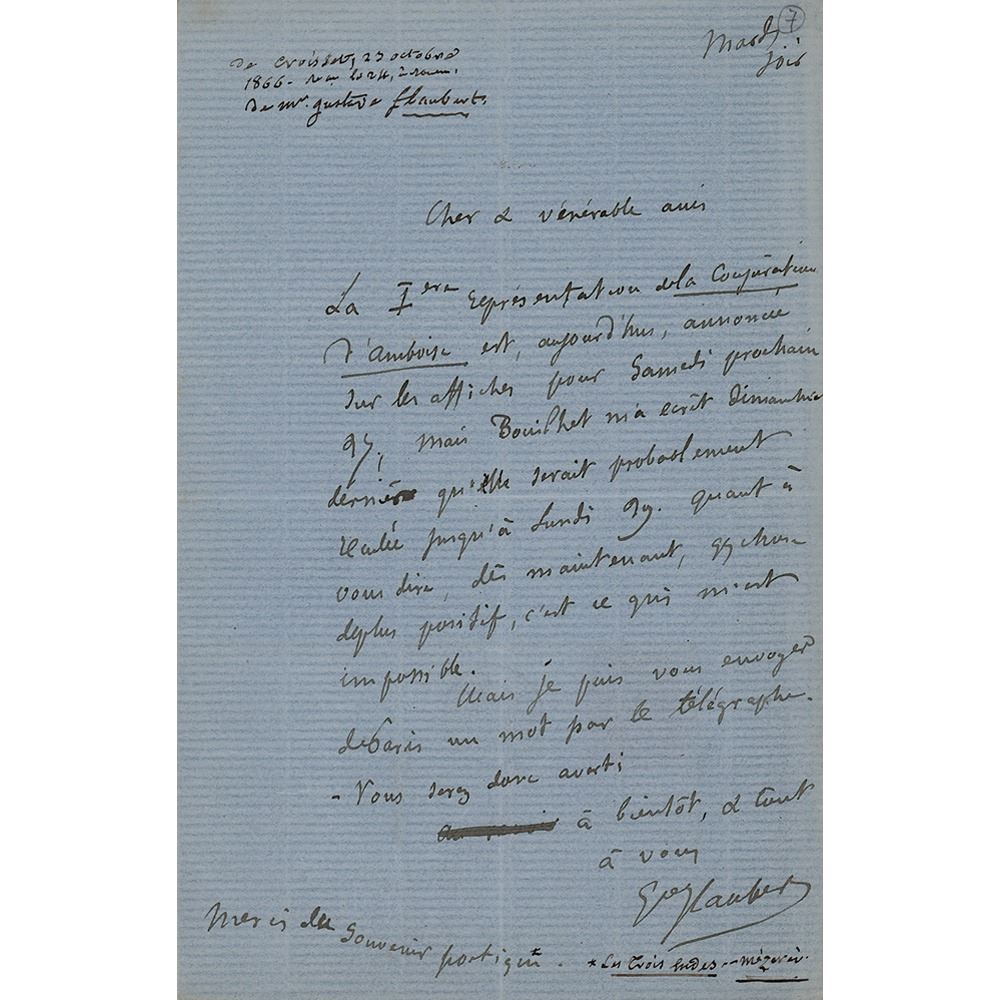 7
Mardi
soir
de Croisset, 23 octobre
1866 - reçu le 24, à Rouen.
de Mr. Gustave Flaubert.
Cher & vénérable ami
La Iere représentation de la Conjuration
d'Amboise est, aujourd'hui, annoncée
sur les affiches pour Samedi prochain
27, mais Bouilhet m'a écrit Dimanche
dernier qu'elle serait probablement
reculée jusqu'à Lundi 29. quant à
vous dire, dès maintenant, qq chose
de plus positif, c'est ce qui m'est
impossible.
Mais je puis vous envoyer
de Paris un mot par le télégraphe.
- Vous serez donc averti
à bientôt, & tout
à vous
Gve Flaubert
Merci du souvenir poétique* -
* Les Trois Andes -- Mézerai.